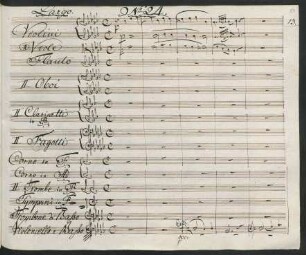 Largo. No. 21.
Violini
Viole
Flauto
II. Oboi
II. Clarinetti
II. Fagotti
Corno in
Corno in
II Trombe in
Tympani in
Trombone di Basso
Violoncello e Basso